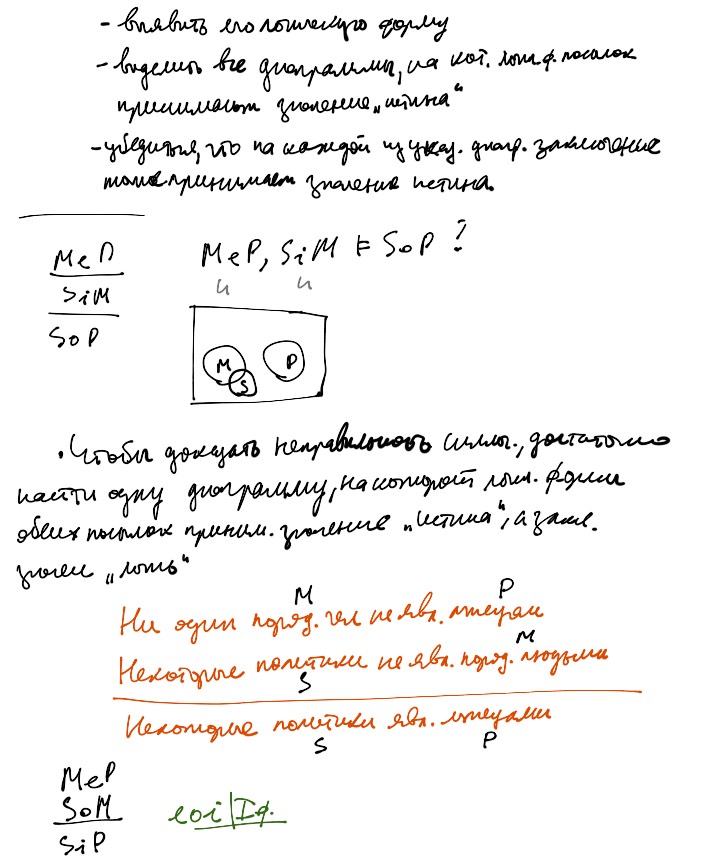 - выявить его логическую форму
- выделить все диаграммы, на кот. лог. ф. посылок
принимают значение „истина"
- убедиться, что на каждой из указ. диагр. заключение
также принимает значение истина.
MeP
SiM
SoP
MeP, SiM ⊨ SoP ?
и и
M S P
• Чтобы доказать неправильность силлог., достаточно
найти одну диаграмму, на которой лог. форм
обеих посылок приним. значение „истина", а закл.
значен „ложь"
M P
Ни один поряд. чел не явл. лжецам
M
Некоторые политики не явл. поряд. людьми
S
Некоторые политики явл. лжецами
S P
MeP
SoM
SiP
eoi | I ф.